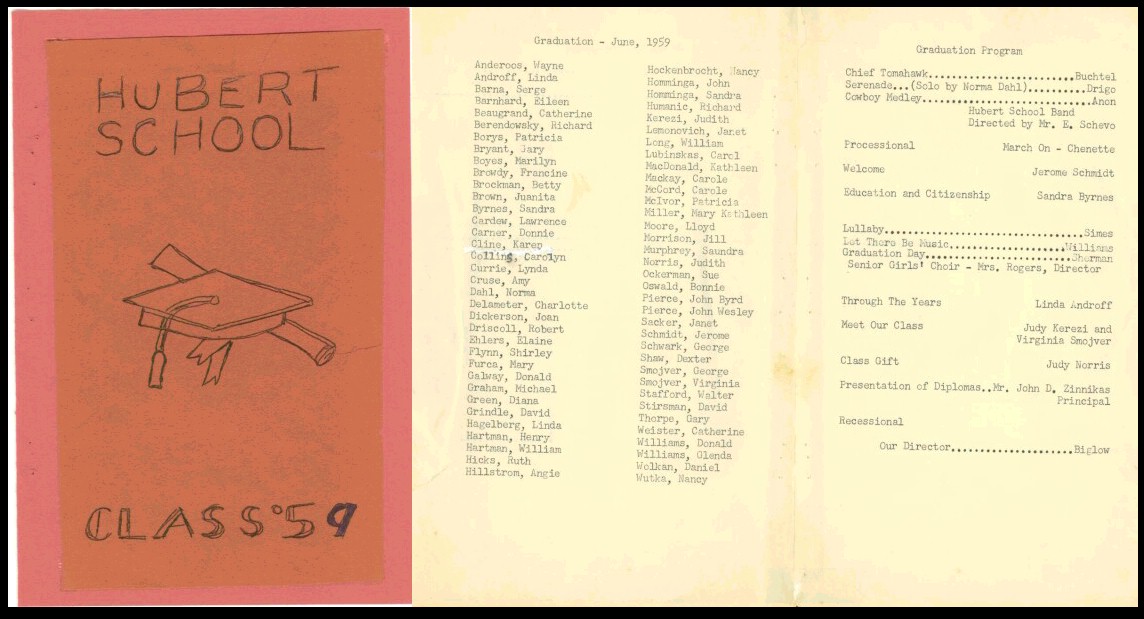 HUBERT
SCHOOL
CLASS '59
Graduation - June, 1959
Anderoos, Wayne
Androff, Linda
Barna, Serge
Barnhard, Eileen
Beaugrand, Catherine
Berendowsky, Richard
Borys, Patricia
Bryant, Gary
Boyes, Marilyn
Browdy, Francine
Brockman, Betty
Brown, Juanita
Byrnes, Sandra
Cardew, Lawrence
Carner, Donnie
Cline, Karen
Collins, Carolyn
Currie, Lynda
Cruse, Amy
Dahl, Norma
Delameter, Charlotte
Dickerson, Joan
Driscoll, Robert
Ehlers, Elaine
Flynn, Shirley
Furca, Mary
Galway, Donald
Graham, Michael
Green, Diana
Grindle, David
Hagelberg, Linda
Hartman, Henry
Hartman, William
Hicks, Ruth
Hillstrom, Angie
Hockenbrocht, Nancy
Homminga, John
Homminga, Sandra
Humanic, Richard
Kerezi, Judith
Lemonovich, Janet
Long, William
Lubinskas, Carol
MacDonald, Kathleen
Mackay, Carole
McCord, Carole
McIvor, Patricia
Miller, Mary Kathleen
Moore, Lloyd
Morrison, Jill
Murphrey, Saundra
Norris, Judith
Ockerman, Sue
Oswald, Bonnie
Pierce, John Byrd
Pierce, John Wesley
Sacker, Janet
Schmidt, Jerome
Schwark, George
Shaw, Dexter
Smojver, George
Smojver, Virginia
Stafford, Walter
Stirsman, David
Thorpe, Gary
Weister, Catherine
Williams, Donald
Williams, Glenda
Wolkan, Daniel
Wutka, Nancy
Graduation Program
Chief Tomahawk........................Buchtel
Serenade...(Solo by Norma Dahl)..........Drigo
Cowboy Medley............................Anon
Hubert School Band
Directed by Mr. E. Schevo
Processional March On - Chenette
Welcome Jerome Schmidt
Education and Citizenship Sandra Byrnes
Lullaby.................................Simes
Let There Be Music...................Williams
Graduation Day........................Sherman
Senior Girls' Choir - Mrs. Rogers, Director
Through The Years Linda Androff
Meet Our Class Judy Kerezi and
Virginia Smojver
Class Gift Judy Norris
Presentation of Diplomas..Mr. John D. Zinnikas
Principal
Recessional
Our Director....................Biglow